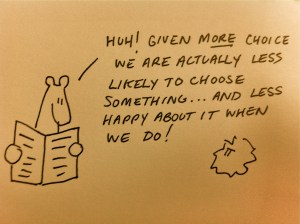 HUH! GIVEN MORE CHOICE
WE ARE ACTUALLY LESS
LIKELY TO CHOOSE
SOMETHING... AND LESS
HAPPY ABOUT IT WHEN
WE DO!